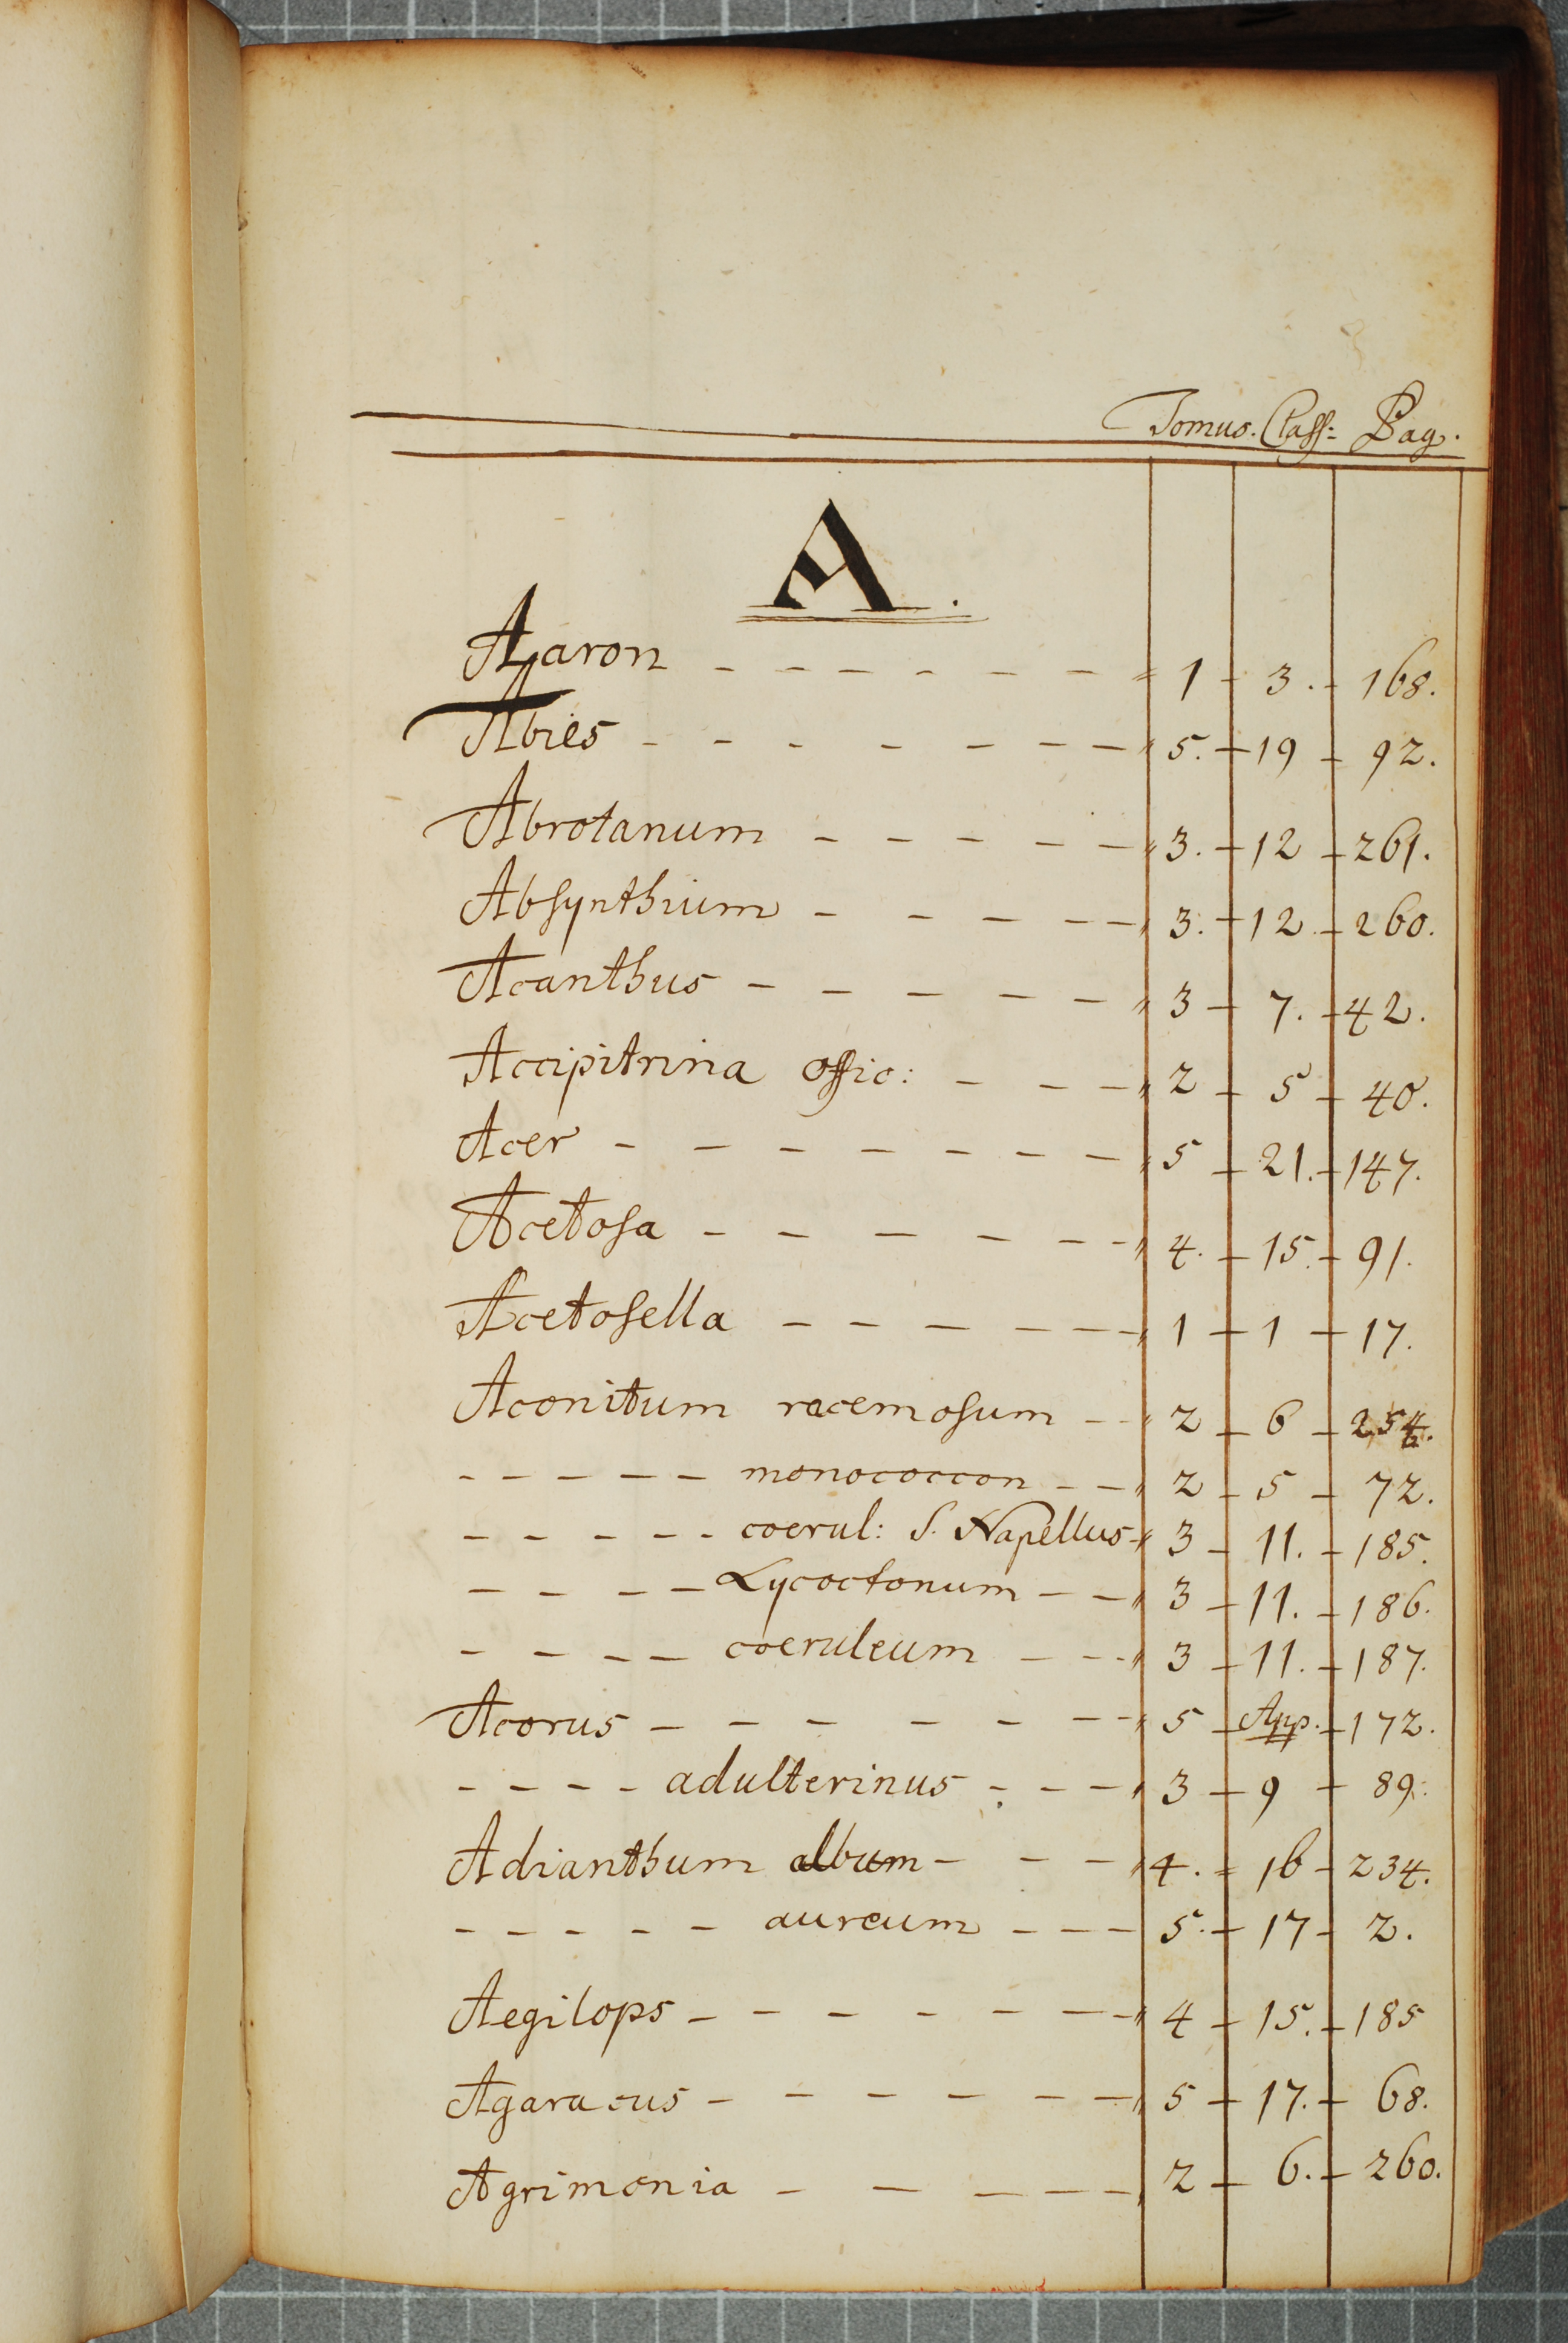 Tomus. Class: Pag.
A.
Aaron - - - - - - - 1 - 3. - 168.
Abies - - - - - - - 5. - 19 - 92.
Abrotanum - - - - - 3. - 12 - 261.
Absynthium - - - - - 3. - 12 - 260.
Acanthus - - - - - 3 - 7. - 42.
Accipitrina offic: - - - 2 - 5 - 40.
Acer - - - - - - - 5 - 21. - 147.
Acetosa - - - - - - 4. - 15. - 91.
Acetosella - - - - - - 1 - 1 - 17.
Aconitum racemosum - - 2 - 6 -
- - - - - monococcon - - 2 - 5 - 72.
- - - - - coerul: S. Napellus - 3 - 11. - 185.
- - - - Lycoctonum - - 3 - 11. - 186.
- - - - coeruleum - - - 3 - 11. - 187.
Acorus - - - - - - - 5 - App. - 172.
- - - - adulterinus - - - 3 - 9 - 89.
Adianthum album - - - 4. - 16 - 234.
- - - - - aureum - - - 5. - 17 - 2.
Aegilops - - - - - - - 4 - 15. - 185
Agaracus - - - - - - 5 - 17. - 68.
Agrimonia - - - - - 2 - 6. - 260.